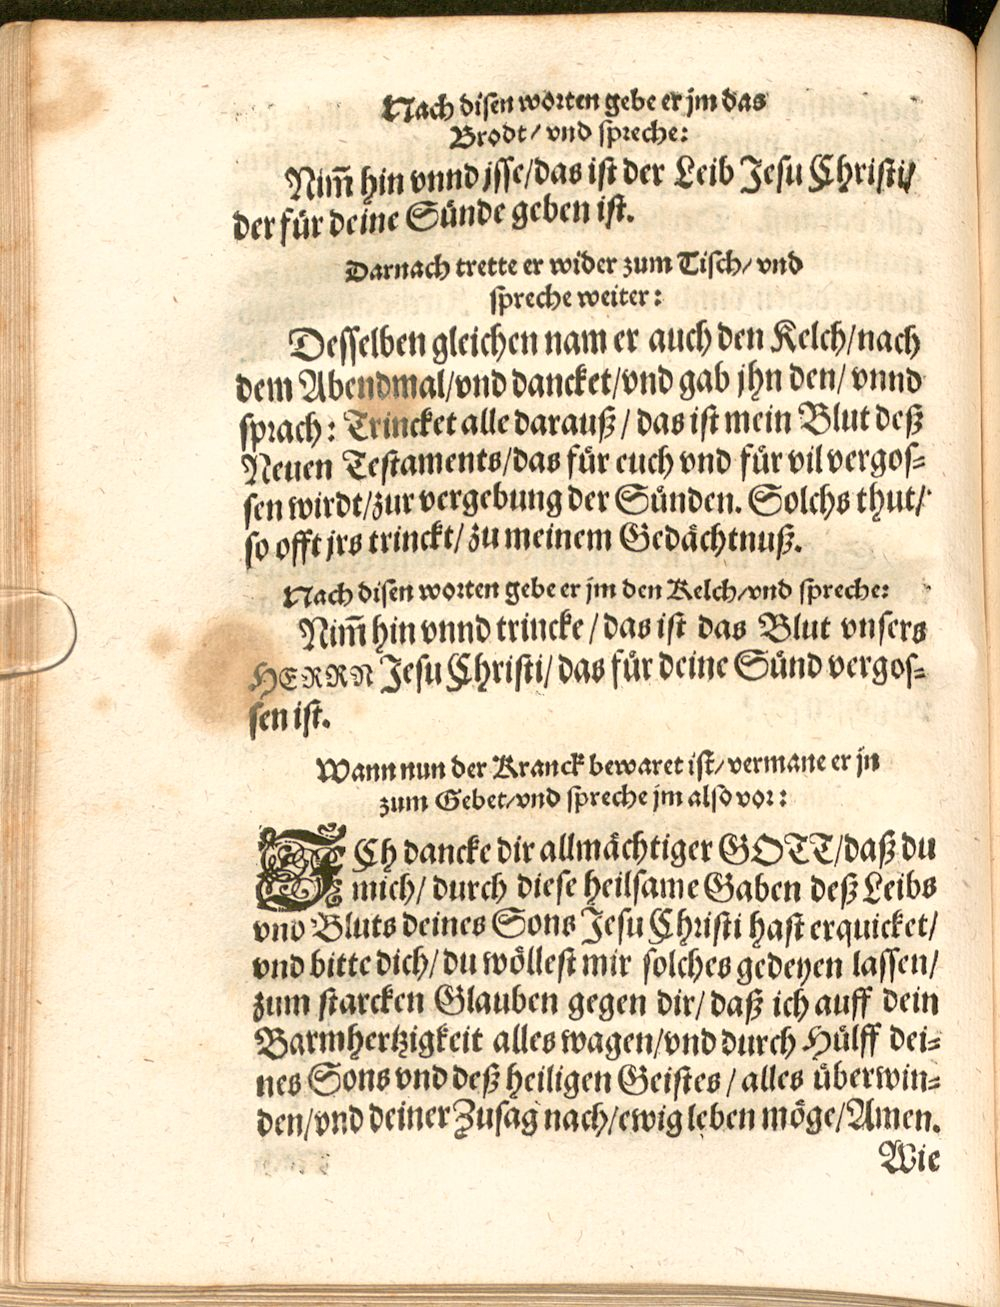 Nach disen worten gebe er jm das
Brodt/ vnd spreche:
Nim̄ hin vnnd jsse/das ist der Leib Jesu Christi/
der für deine Sünde geben ist.
Darnach trette er wider zum Tisch/ vnd
spreche weiter:
Desselben gleichen nam er auch den Kelch/nach
dem Abendmal/vnd dancket/vnd gab jhn den/ vnnd
sprach: Trincket alle darauß/ das ist mein Blut deß
Neuen Testaments/das für euch vnd für vil vergos-
sen wirdt/zur vergebung der Sünden. Solchs thut/
so offt jrs trinckt/ zu meinem Gedächtnuß.
Nach disen worten gebe er jm den Kelch/vnd spreche:
Nim̄ hin vnnd trincke/das ist das Blut vnsers
HERRN Jesu Christi/das für deine Sünd vergos-
sen ist.
Wann nun der Kranck bewaret ist/vermane er jn
zum Gebet/vnd spreche jm also vor:
ICh dancke dir allmächtiger GOTT/daß du
mich/ durch diese heilsame Gaben deß Leibs
vnd Bluts deines Sons Jesu Christi hast erquicket/
vnd bitte dich/du wöllest mir solches gedeyen lassen/
zum starcken Glauben gegen dir/ daß ich auff dein
Barmhertzigkeit alles wagen/vnd durch Hülff dei-
nes Sons vnd deß heiligen Geistes/ alles überwin-
den/vnd deiner Zusag nach/ewig leben möge/Amen.
Wie